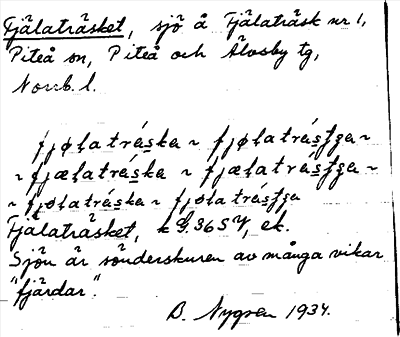 Fjälaträsket, sjö å Fjälaträsk nr 1,
Piteå sn, Piteå och Älvsby tg,
Norrb. l.
fjøḷa tráska ~ fjøḷatrásʃʒa ~
~ fjæḷatráska ~ fjæḷatrásʃʒa ~
~ fjøḷatráska ~ fjøḷa trásʃʒa
Fjälaträsket, k 9. 36 S Y, ek.
Sjön är sönderskuren av många vikar
"fjärdar".
B. Nygren 1934.